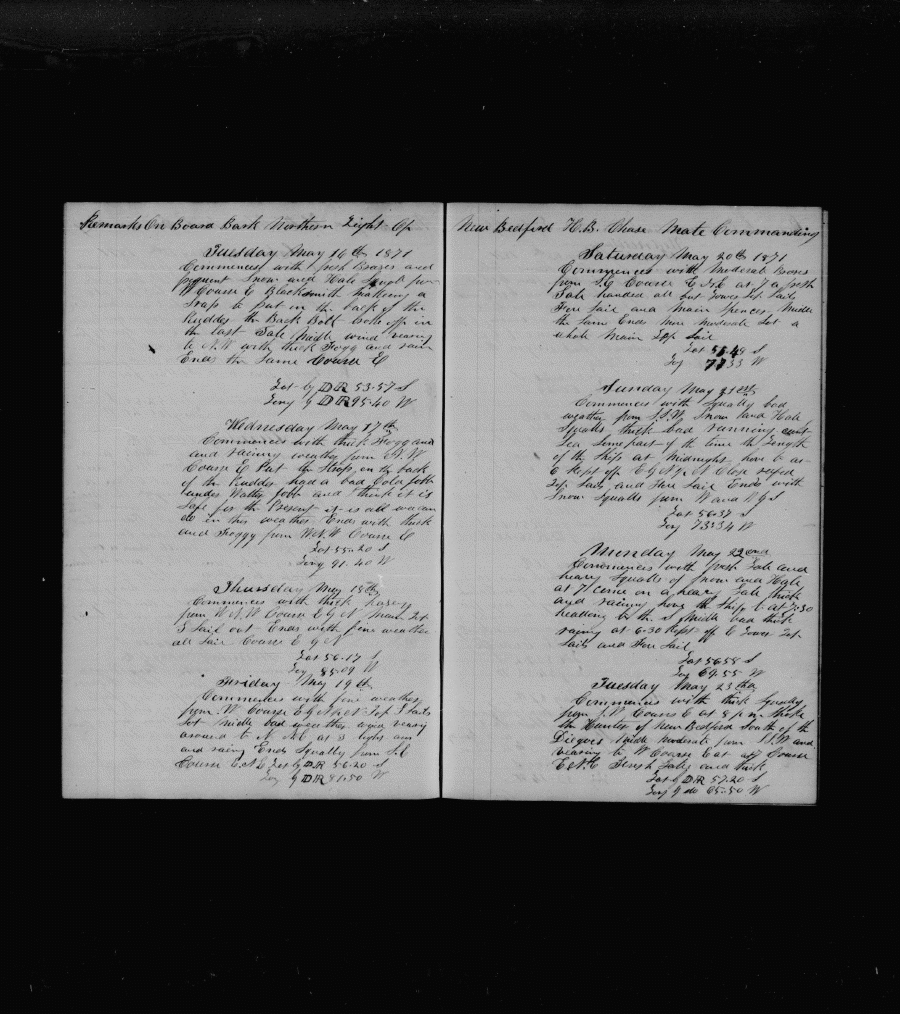 Remarks On Board Bark Northern Light Of
Tuesday May 16th 1871
Commences with fresh Brazes and
frequent Snow and Hale Squals from
W Course E Blacksmith makeing a
Strap to put on the back of the
Rudder the Back Bolt broke off in
the last Gale Midle wind vearing
to N.W with thick Fogg and rain
Ends the Same Course E
Lat by DR 53-57 S
Long y DR 95.40 W
Wednesday May 17th
Commences with thick Fogg and
and rainy weather from N.W
Course E Put the Strap on the back
of the Rudder had a bad Cold Jobb
under Watter Jobb and I think it is
Safe for the Present it is all we can
do in this weather Ends with thick
and Foggy from WNW Course E
Lat 55-20 S
Long 91.40 W
Thursday May 18th
Commences with thick hazey
from W.N.W Course E y N Main Top
S Sail out Ends with fine weather
all Sail Course E y N
Lat 56-17 S
Long 85-09 W
Friday May 19th
Commences with fine weather
from W Course E y N Top S Sails
Set Midle bad weather wind vearing
around to N at 3 light air
and rainy Ends Squally from S.E
Course E.N.E Lat by DR 56-20 S
Long y DR 81-50 W
New Bedford H.B. Chase Mate Commanding
Saturday May 20th 1871
Commences with Moderate Brases
from S.E Course E.N.E at 7 a fresh
Gale handed all but Lower Top Sails
Fore Sail and Main Spencer Midle
the Same Ends More Moderate Set a
whole Main Top Sail
Lat 57.49 S
Long 77 33 W
Sunday May 21st
Commences with Squally bad
weather from S.S.W Snow and Hale
Squalls thick bad running
Sea Some part of the time the Length
of the Ship at Midnight hove to at
6 Kept off E y N Close reefed
Top Sails and Fore Sail Ends with
Snow Squalls from W and W y S
Lat 56-37 S
Long 73-34 W
Monday May 22ond
Commences with fresh Gale and
heavy Squalls of Snow and Hale
at 7 came on a heavy Gale thick
and racing hove the Ship to at 7-30
heading to the S Midle bad thick
racing at 6-30 Kept off E Lower Top
Sails and Fore Sail
Lat 56 58 S
Long 69.55 W
Tuesday May 23th
Commences with thick Squally
from S.W Course E at 8 p.m. Spoke
the Hunter of New Bedford South of the
Diegoes Midle moderate from S.S.W and
vearing to W Course E at 7 Course
E.N.E Fresh Gales and thick
Lat y DR 57.20 S
Long y do 65-50 W